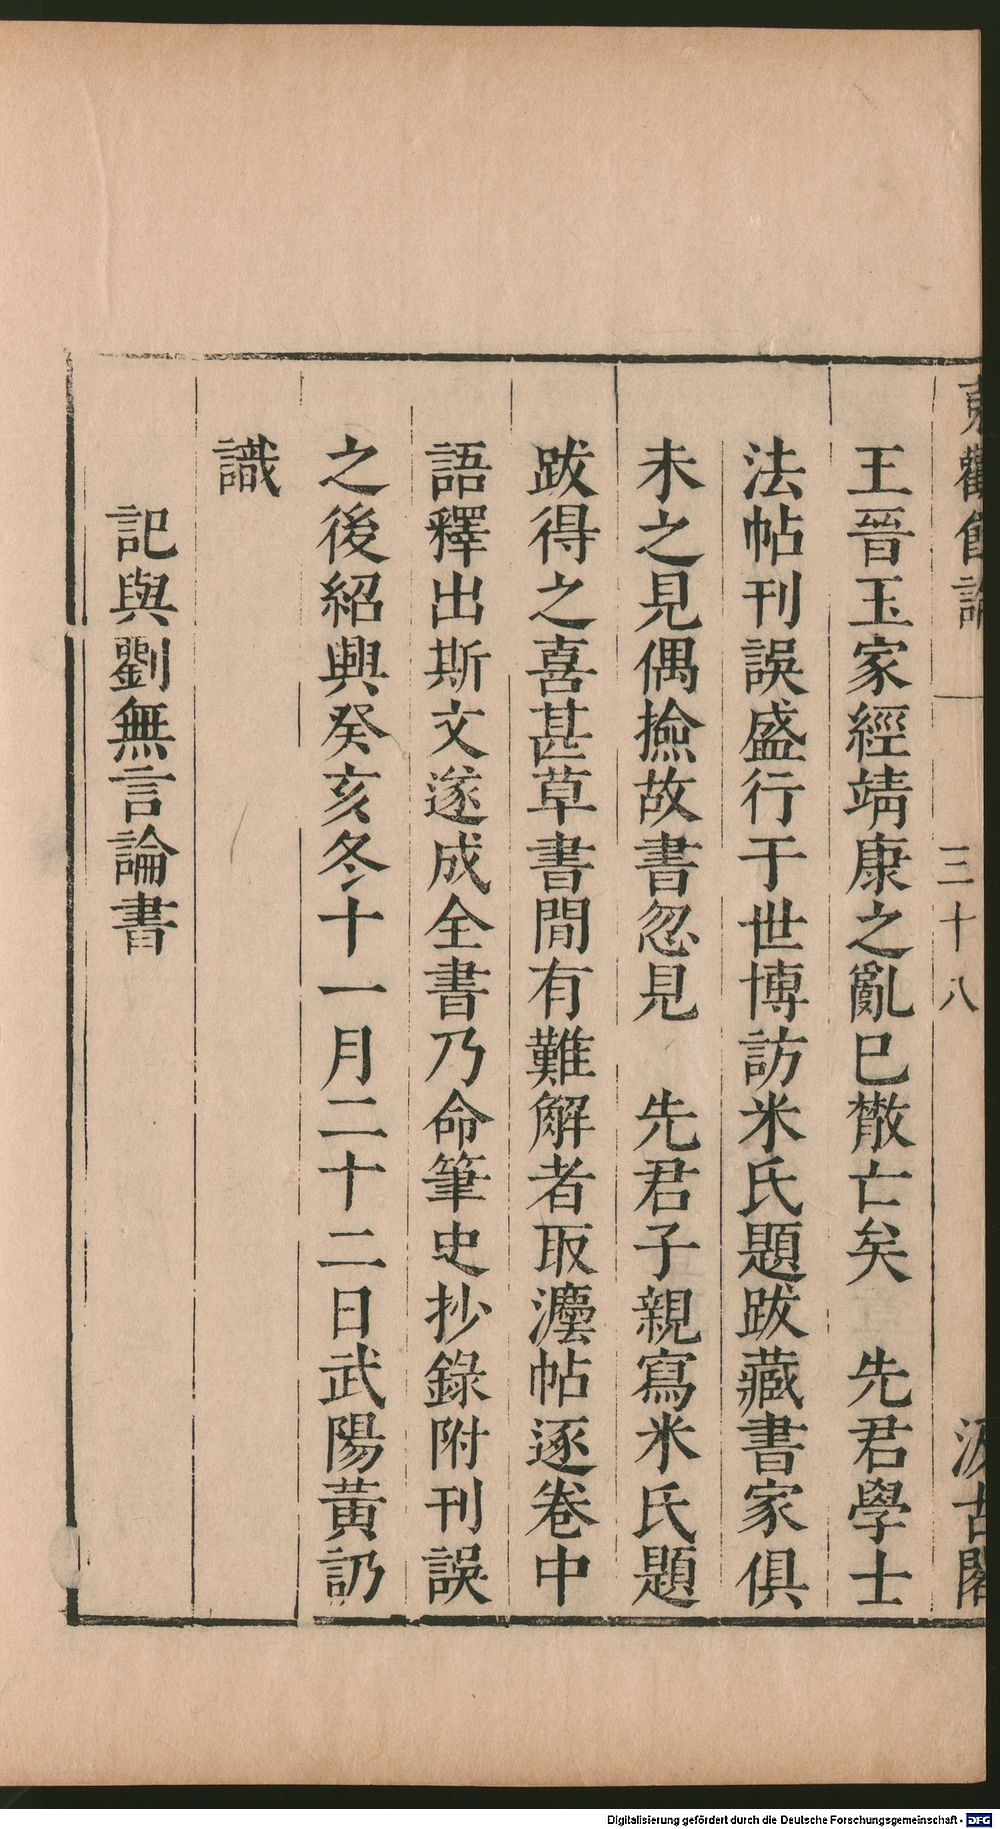 東觀餘論
三十八
汲古閣
王晉玉家經靖康之亂已散亡矣　先君學士
法帖刊誤盛行于世博訪米氏題跋藏書家俱
未之見偶撿故書忽見　先君子親寫米氏題
跋得之喜甚草書間有難解者取灋帖逐卷中
語釋出斯文遂成全書乃命筆史抄錄附刊誤
之後紹興癸亥冬十一月二十二日武陽黃訒
識
記與劉無言論書
Digitalisierung gefördert durch die Deutsche Forschungsgemeinschaft - DFG